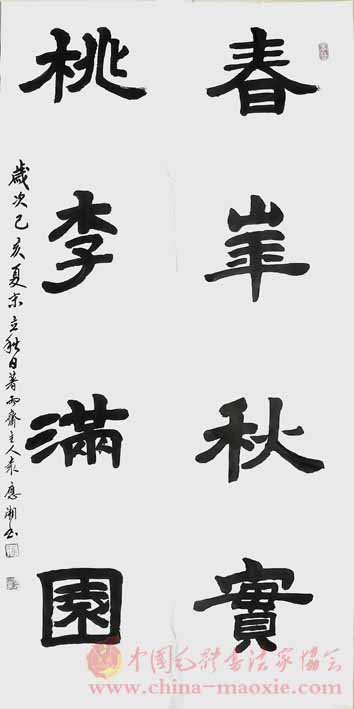 春華秋實
桃李滿園
歲次己亥夏末立秋日著雨齋主人袁應湖书
中国毛體书法家協会
www.china-maoxie.com